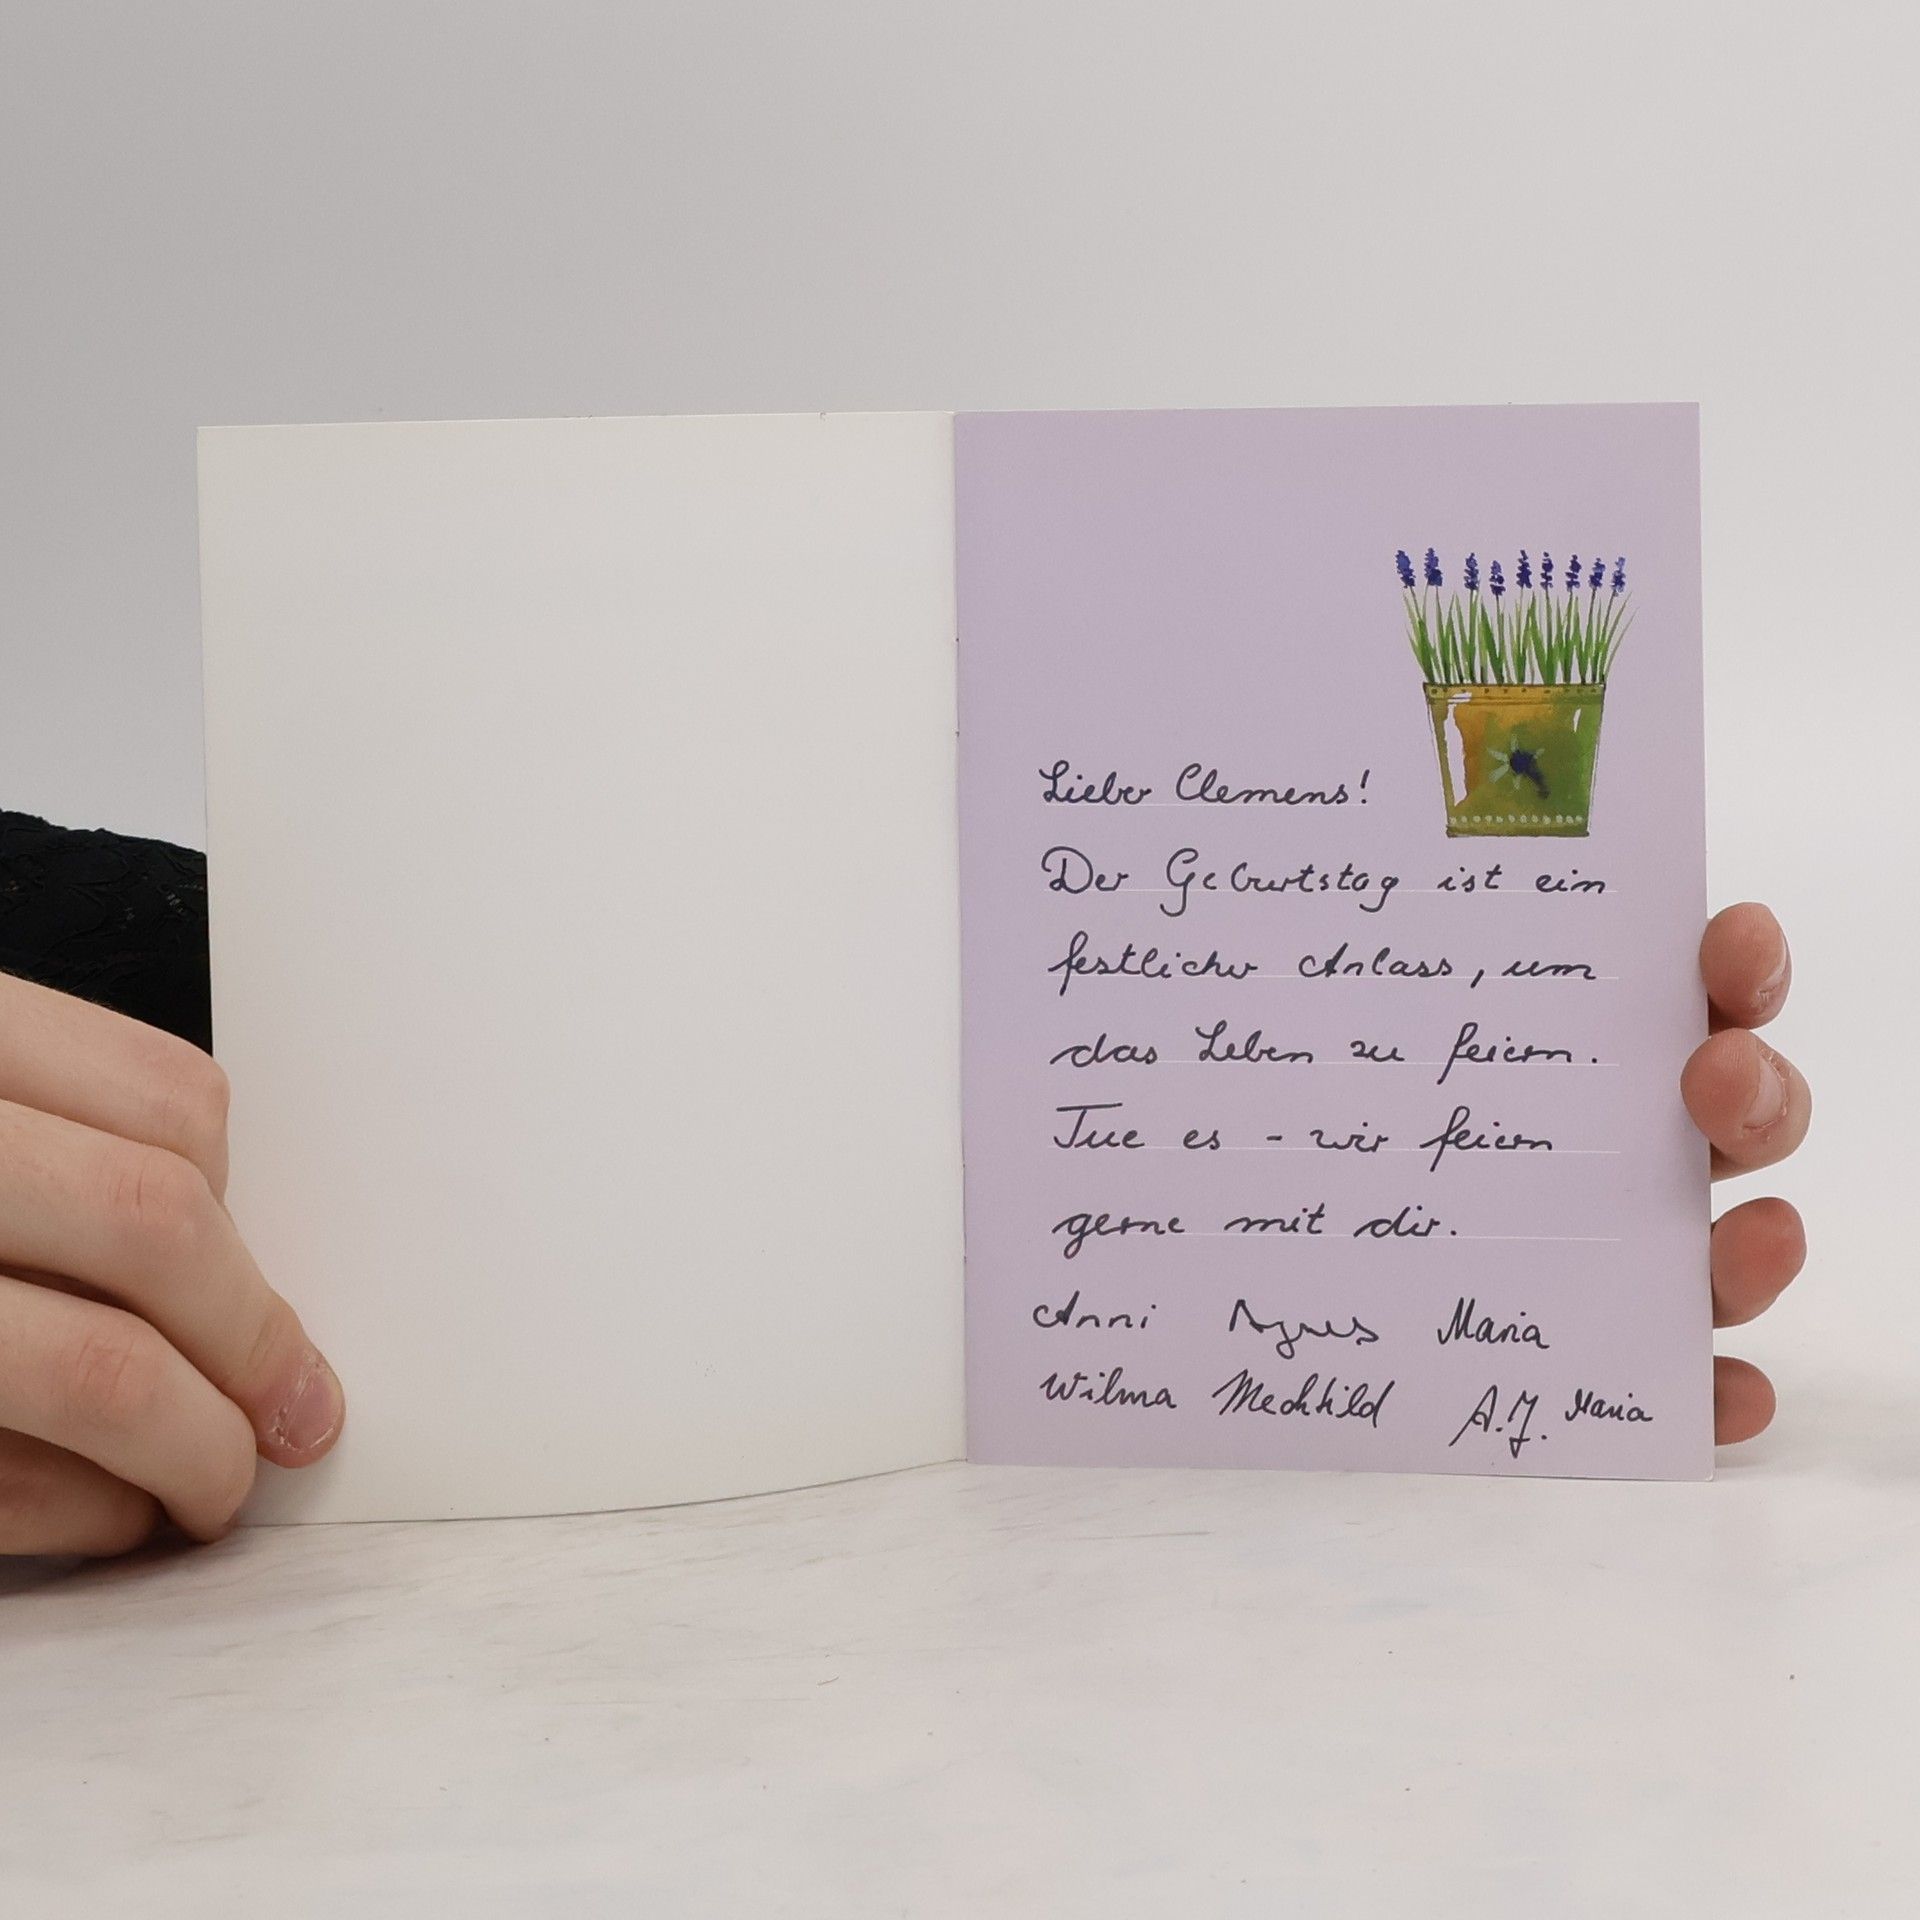 Lieber Clemens!
Der Geburtstag ist ein
festlicher Anlass, um
das Leben zu feiern.
Tue es - wir feiern
gerne mit dir.
Anni Agnes Maria
Wilma Mechtild A.J. Maria